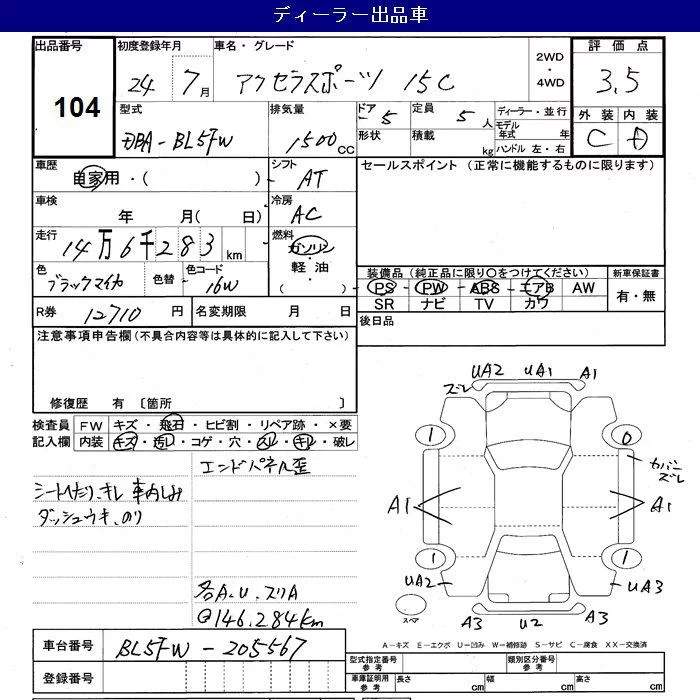 ディーラー出品車
出品番号 104
初度登録年月 24 7月
車名・グレード アクセラスポーツ 15C
2WD・4WD
評価点 3.5
外装 C 内装 D
型式 DBA-BL5FW
排気量 1500CC
ドア -5 形状
定員 5人 積載 kg
ディーラー・並行
モデル年式 年
ハンドル 左・右
車歴 自家用・( )
シフト AT
セールスポイント (正常に機能するものに限ります)
車検 年 月( 日)
冷房 AC
走行 14万6千283km
燃料 ガソリン・軽・油 ( )
色 ブラックマイカ 色替 -
色コード 16W
装備品 (純正品に限り○をつけてください)
PS PW ABS エアB AW
SR ナビ TV カワ
新車保証書 有・無
R券 12710円
名変期限 月 日
後日品
注意事項申告欄 (不具合内容等は具体的に記入して下さい)
修復歴 有 〔箇所 〕
検査員記入欄
FW キズ・飛石・ヒビ割・リペア跡・×要
内装 キズ・汚レ・コゲ・穴・スレ・キレ・破レ
エンドパネル歪
シートへたり、キレ 車内しみ
ダッシュウキ、のり
各A.U.スリA
@146.284km
UA2 UA1 A1
ズレ
1 0
カバーズレ
A1 A1
1 1
UA2 UA3
スペア
A3 U2 A3
A-キズ E-エクボ U-凹み W-補修跡 S-サビ C-腐食 XX-交換済
車台番号 BL5FW-205567
登録番号
型式指定番号 参考
類別区分番号 参考
車庫証明用 参考 長さ cm 幅 cm 高さ cm